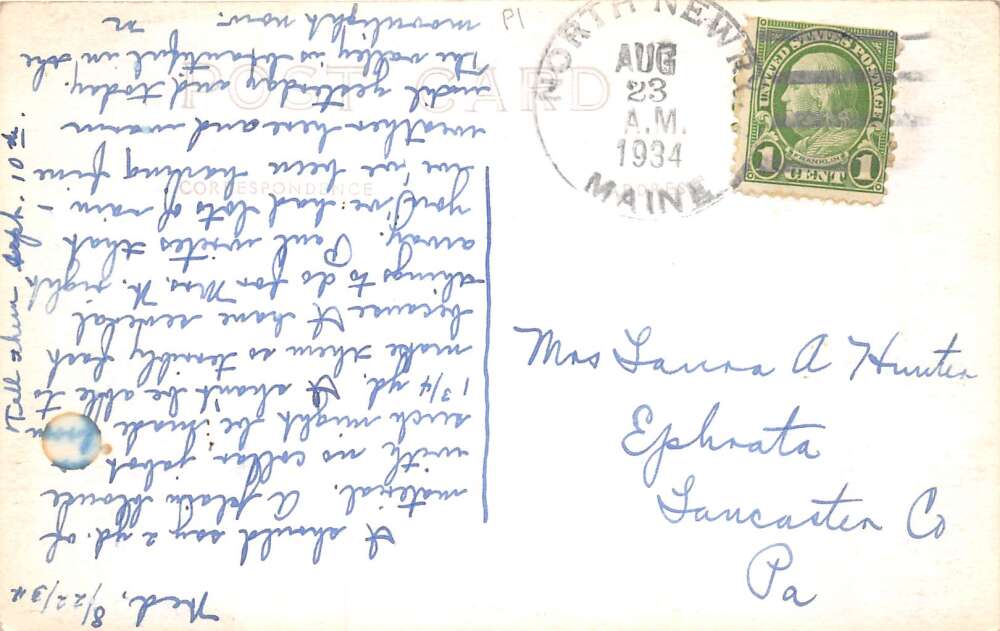 P1
POST CARD
CORRESPONDENCE
ADDRESS
NORTH NEWRY
AUG
23
A.M.
1934
MAINE
UNITED STATES POSTAGE
FRANKLIN
1 CENT 1
Mrs Laura A Hunter
Ephrata
Lancaster Co
Pa
Wed, 8/22/34
I should say 2 yd. of
material. A plain blouse
with no collar, jabot
such might be made
1 3/4 yd. I shan't be able to
make them so terribly fast
because I have several
things to do for Mrs. W. right
away. Paul writes that
you've had lots of rain -
we've been having fine
weather here and warm
until yesterday and today.
The valley is beautiful in the
moonlight now.
Tell them Sept. 10th.